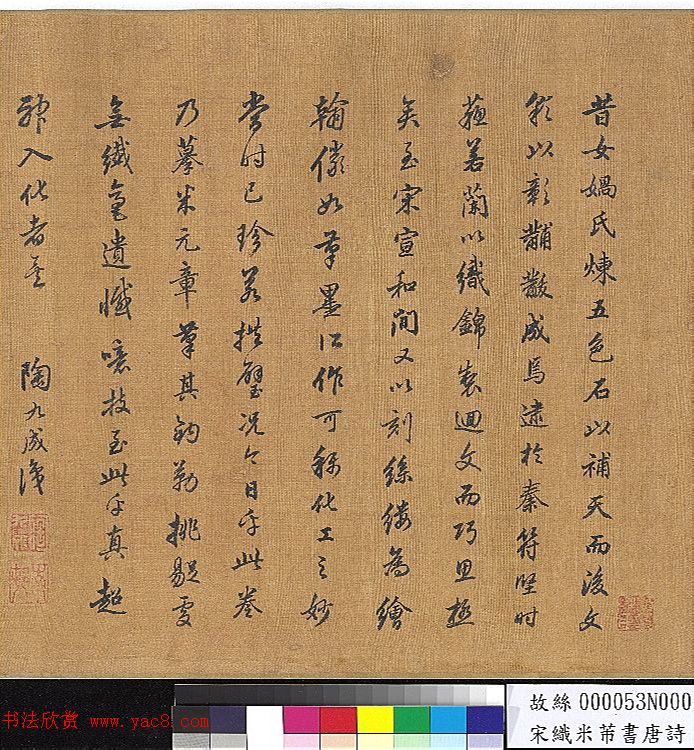 昔女媧氏煉五色石以補天而後文
彩以彰黼黻成焉逮於秦苻堅時
蘇若蘭以織錦製迴文而巧思極
矣至宋宣和間又以刻絲縷為繪
翰儼如筆墨所作可稱化工之妙
當時已珍若拱璧況今日乎此卷
乃摹米元章筆其鈎勒挑剔處
無纖毫遺憾噫技至此乎真超
神入化者矣 陶九成識
书法欣赏 www.yac8.com
故絲000053N000
宋織米芾書唐詩